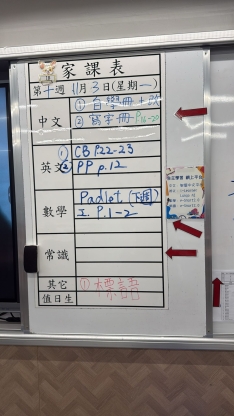 家課表
第十週 11月3日(星期一)
中文
① 自學冊+改
② 寫字冊 P.16-20
英文
① CB P.22-23
② PP p.12
數學
Padlet 下週
工. P.1-2
常識
其它
① 標語
值日生